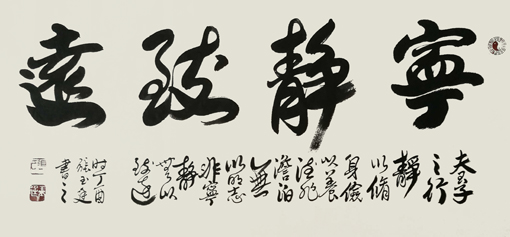 寧靜致遠
夫君子
之行
靜
以脩
身儉
以養
德非
澹泊
無
以明志
非寧
靜
無以
致遠
時丁酉
張玉廷
書之